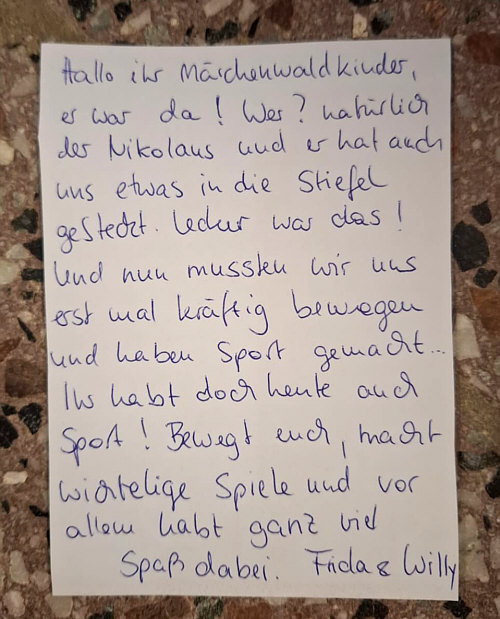 Hallo ihr Märchenwaldkinder,
er war da! Wer? natürlich
der Nikolaus und er hat auch
uns etwas in die Stiefel
gesteckt. Lecker war das!
Und nun mussten wir uns
erst mal kräftig bewegen
und haben Sport gemacht...
Ihr habt doch heute auch
Sport! Bewegt euch, macht
wichtelige Spiele und vor
allem habt ganz viel
Spaß dabei. Frida & Willy